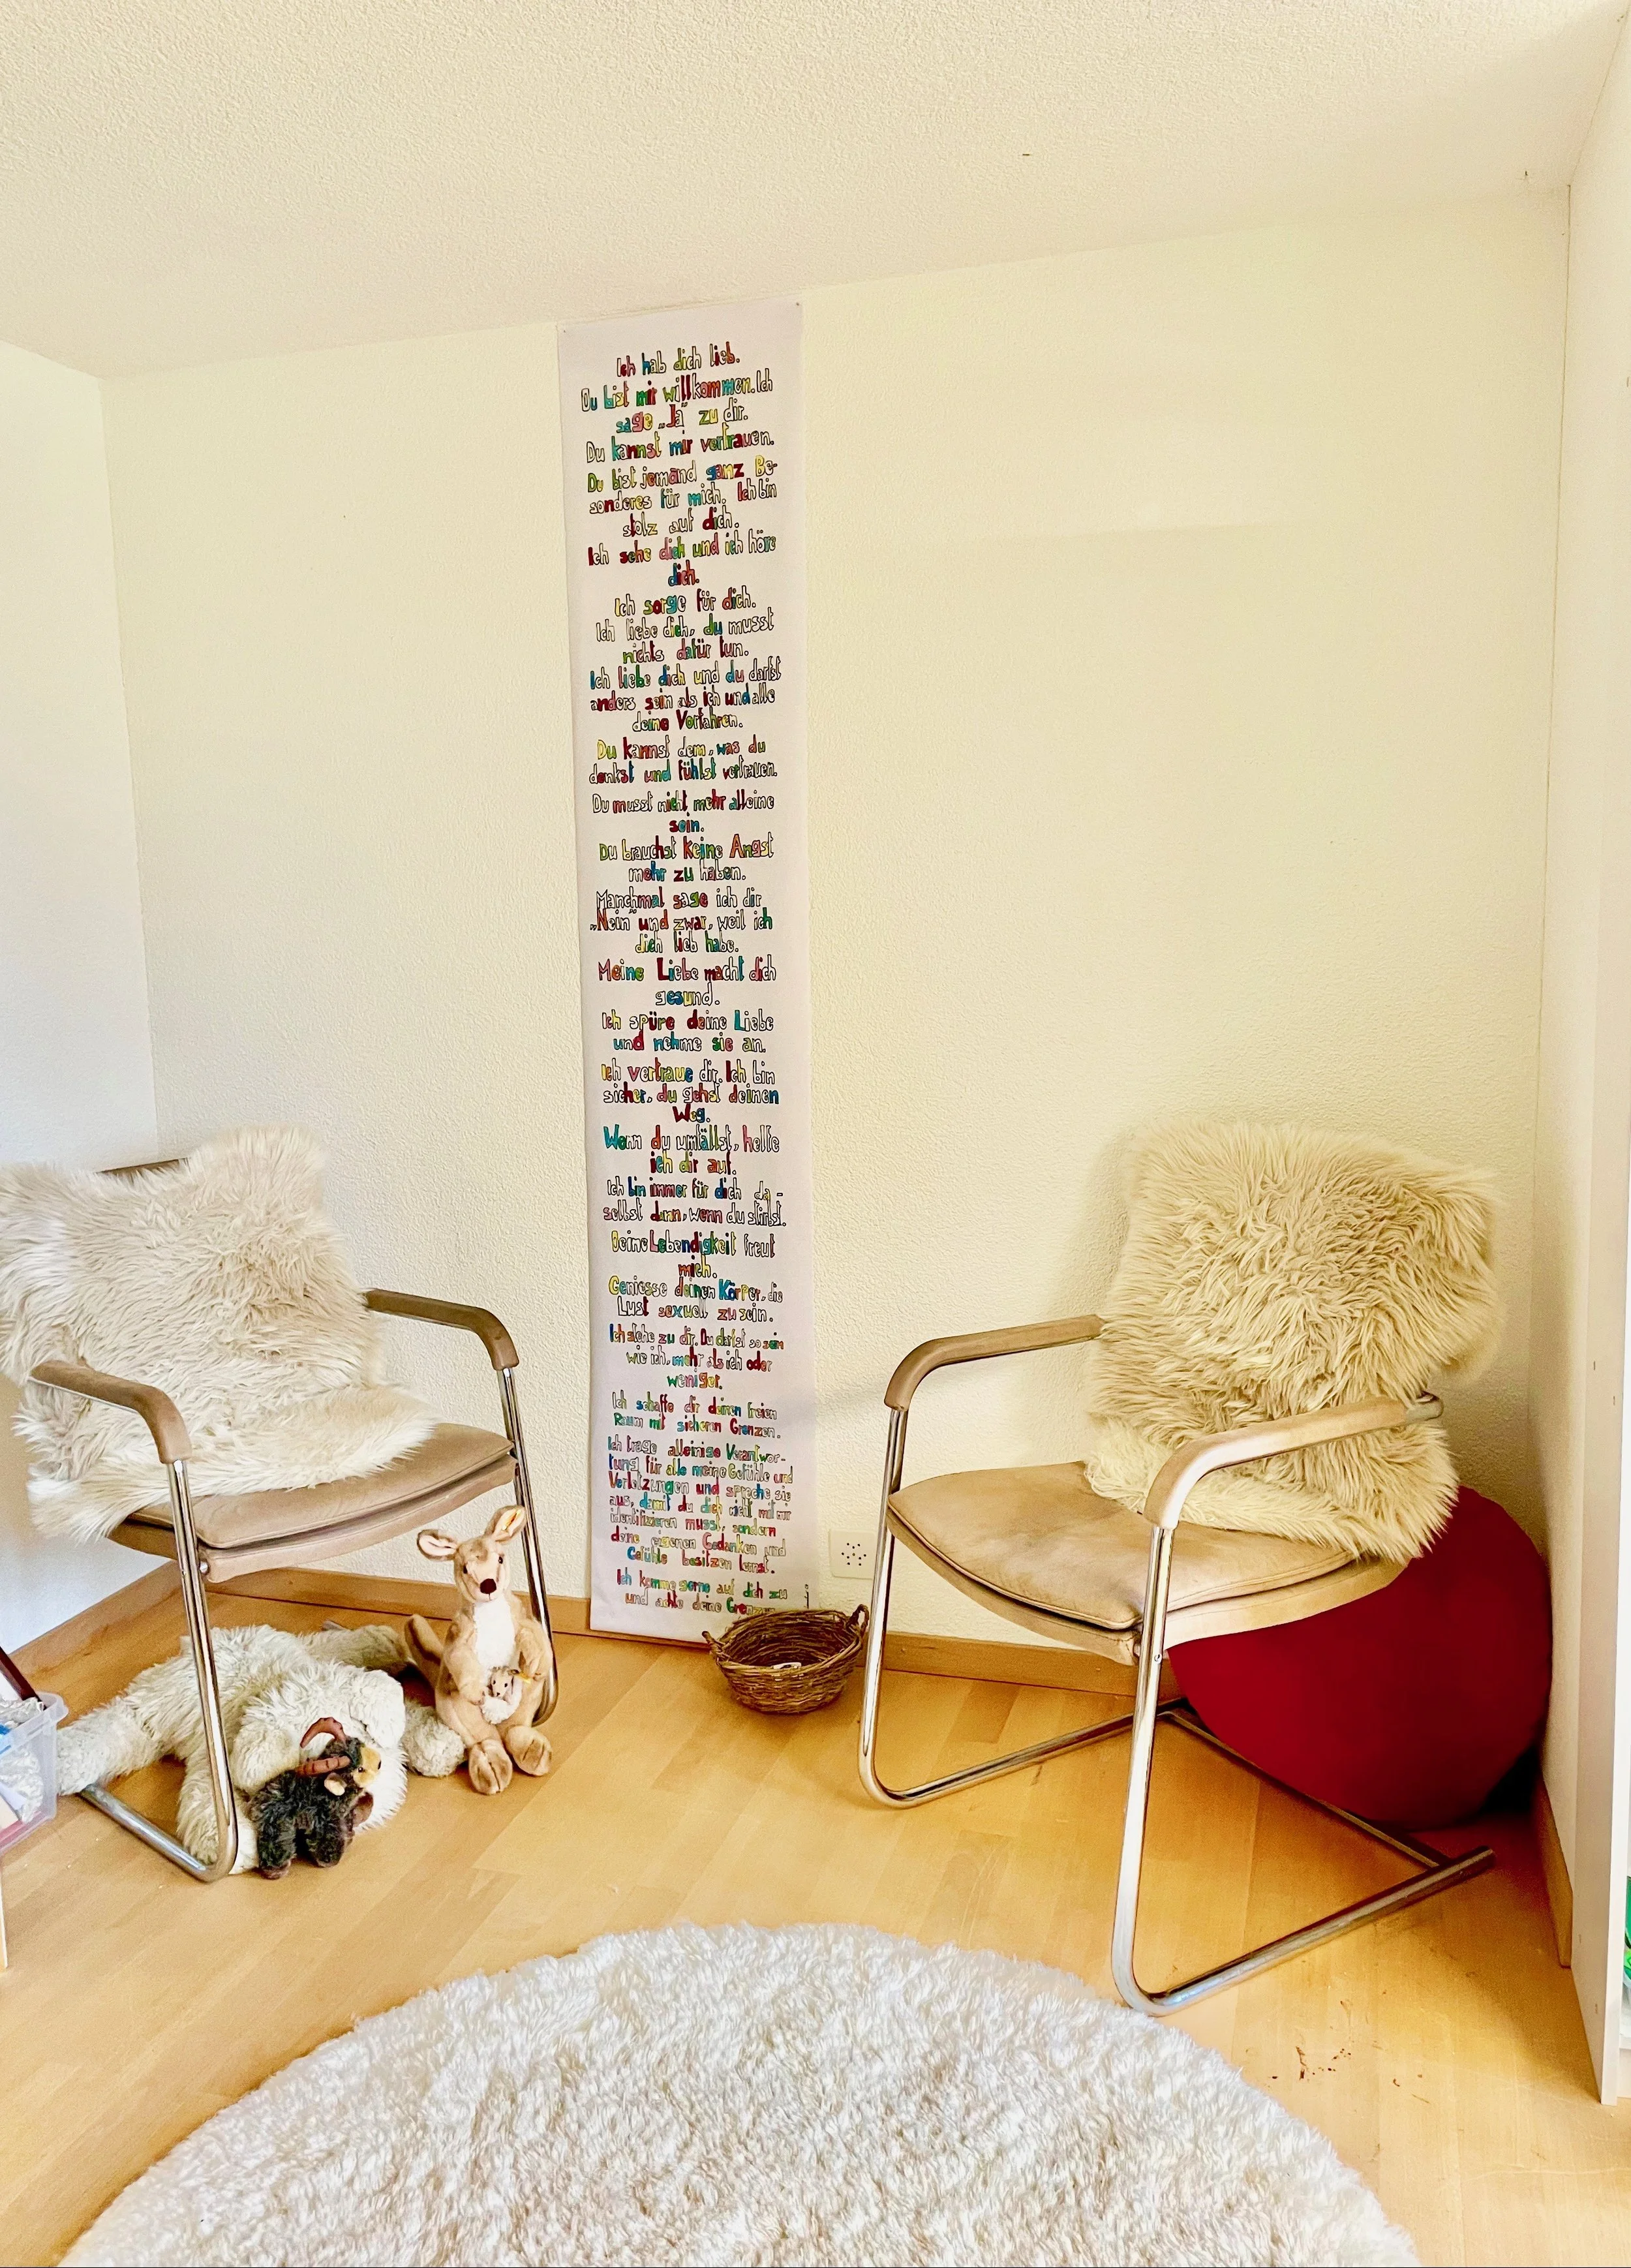 Ich hab dich lieb.
Du bist mir willkommen. Ich
sage „Ja" zu dir.
Du kannst mir vertrauen.
Du bist jemand ganz Be-
sonderes für mich. Ich bin
stolz auf dich.
Ich sehe dich und ich höre
dich.
Ich sorge für dich.
Ich liebe dich, du musst
nichts dafür tun.
Ich liebe dich und du darfst
anders sein als ich und alle
deine Vorfahren.
Du kannst dem, was du
denkst und fühlst vertrauen.
Du musst nicht mehr alleine
sein.
Du brauchst keine Angst
mehr zu haben.
Manchmal sage ich dir
„Nein" und zwar, weil ich
dich lieb habe.
Meine Liebe macht dich
gesund.
Ich spüre deine Liebe
und nehme sie an.
Ich vertraue dir. Ich bin
sicher, du gehst deinen
Weg.
Wenn du umfällst, helfe
ich dir auf.
Ich bin immer für dich da -
selbst dann, wenn du stirbst.
Deine Lebendigkeit freut
mich.
Geniesse deinen Körper, die
Lust sexuell zu sein.
Ich stehe zu dir. Du darfst so sein
wie ich, mehr als ich oder
weniger.
Ich schaffe dir deinen freien
Raum mit sicheren Grenzen.
Ich trage alleinige Verantwor-
tung für alle meine Gefühle und
Verletzungen und spreche sie
aus, damit du dich nicht mit mir
identifizieren musst, sondern
deine eigenen Gedanken und
Gefühle besitzen lernst.
Ich komme gerne auf dich zu
und achte deine Grenzen